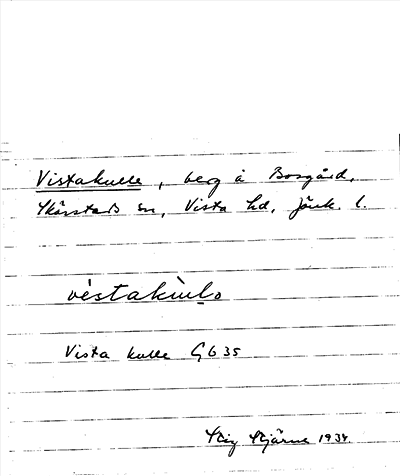 Vistakulle, berg å Bosgård,
Skärstads sn, Vista hd, Jönk. l.
vìstakùlₒ
Vista kulle Gb 35
Stig Stjärne 1934.